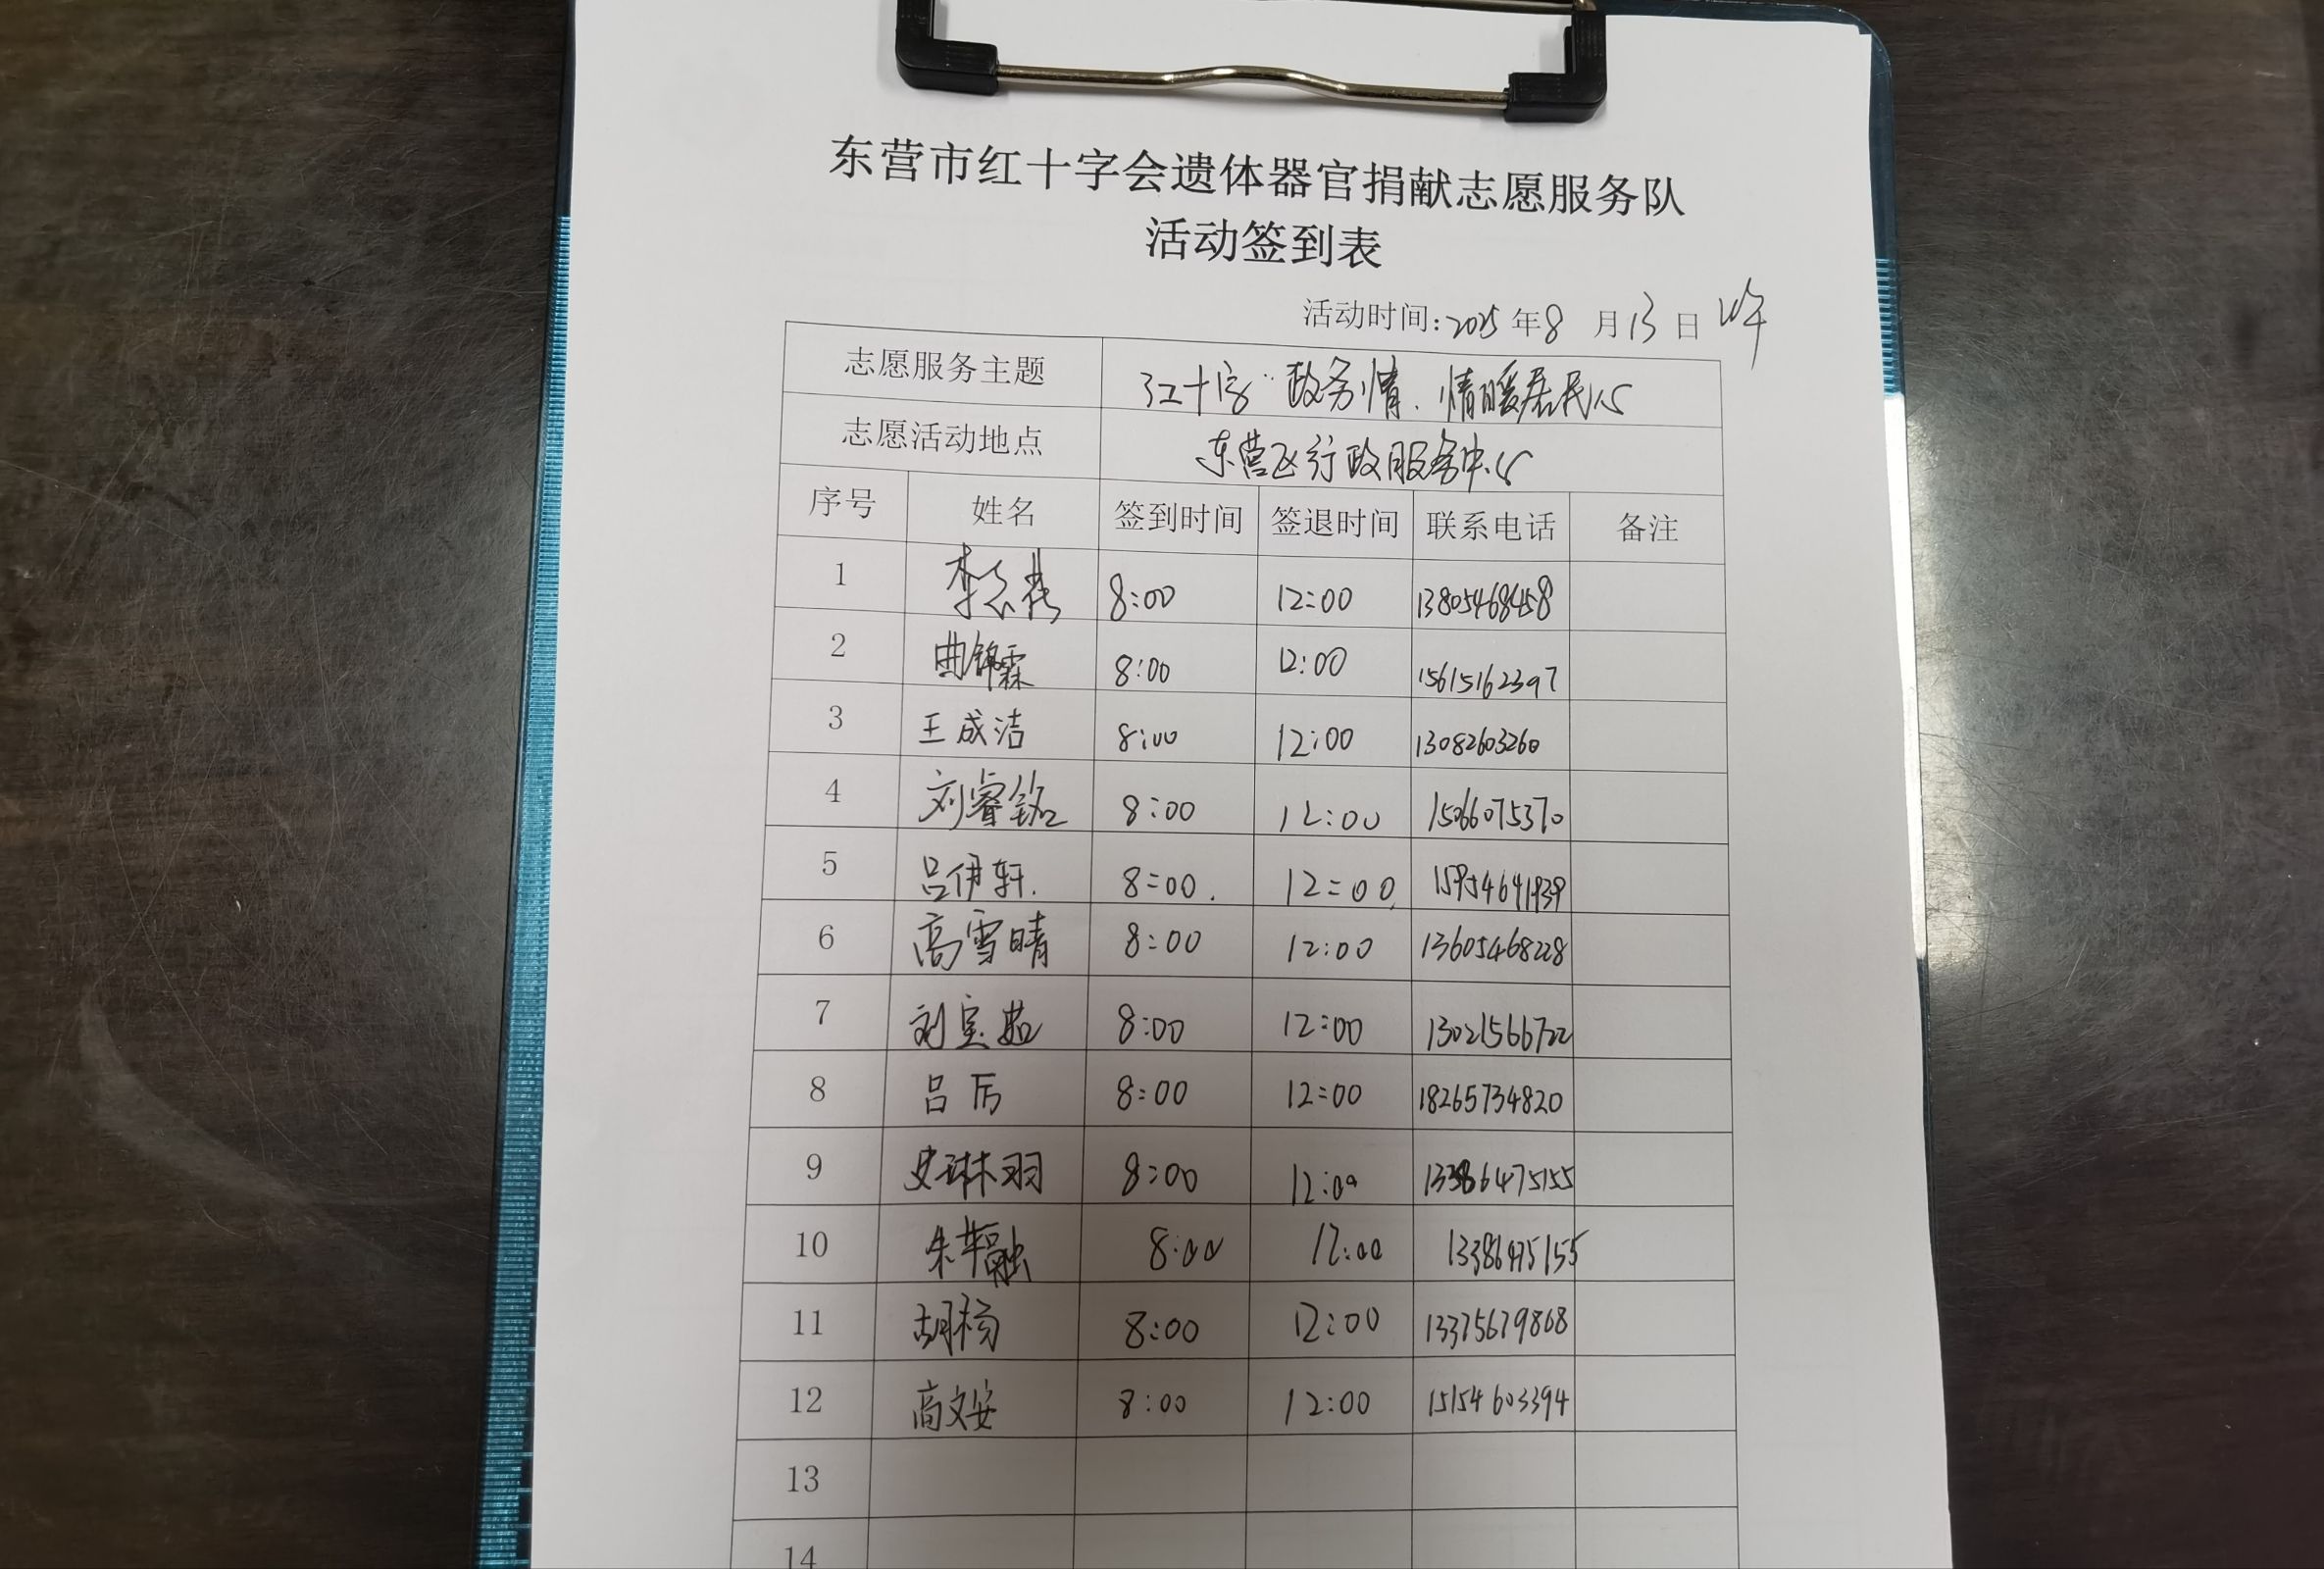 东营市红十字会遗体器官捐献志愿服务队
活动签到表
活动时间:2025年8月13日
志愿服务主题 红十字"政务情.情暖居民心
志愿活动地点 东营区行政服务中心
序号 姓名 签到时间 签退时间 联系电话 备注
1 8:00 12:00 13805468458
2 曲锦霖 8:00 12:00 15615162397
3 王成洁 8:00 12:00 13082603260
4 刘睿铭 8:00 12:00 15066075370
5 吕伊轩. 8:00. 12:00. 15954641939
6 高雪晴 8:00 12:00 13605468228
7 8:00 12:00 13021566722
8 吕厉 8:00 12:00 18265734820
9 史琳羽 8:00 12:00 13386475155
10 8:00 12:00 13386475155
11 胡杨 8:00 12:00 13375679868
12 高文安 8:00 12:00 15154603394
13
14